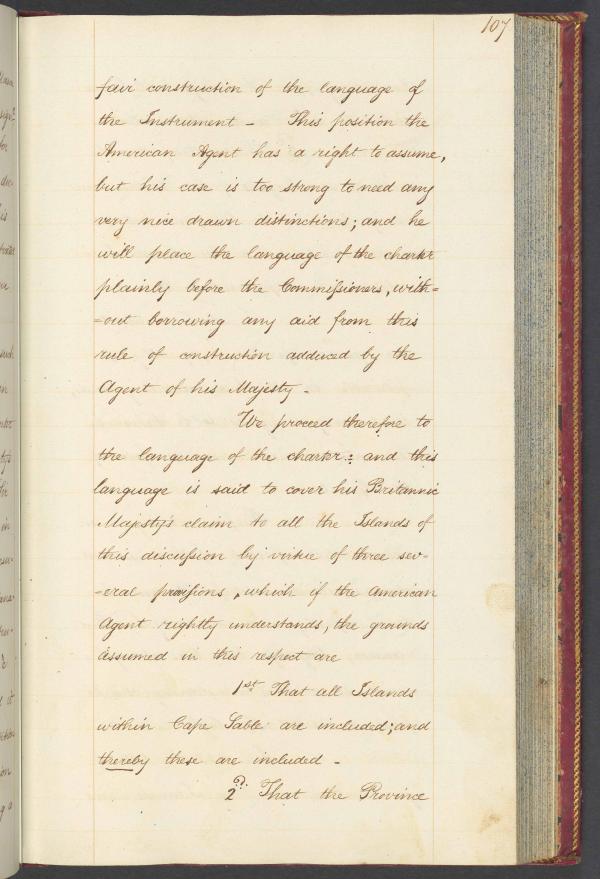 107
fair construction of the language of
the Instrument - This position the
American Agent has a right to assume,
but his case is too strong to need any
very nice drawn distinctions; and he
will place the language of the charter
plainly before the Commissioners, with=
=out borrowing any aid from this
rule of construction adduced by the
Agent of his Majesty -
We proceed therefore to
the language of the charter: and this
language is said to cover his Britannic
Majesty's claim to all the Islands of
this discussion by virtue of three sev-
-eral provisions, which if the American
Agent rightly understands, the grounds
assumed in this respect are
1st That all Islands
within Cape Sable are included; and
thereby these are included -
2d. That the Province